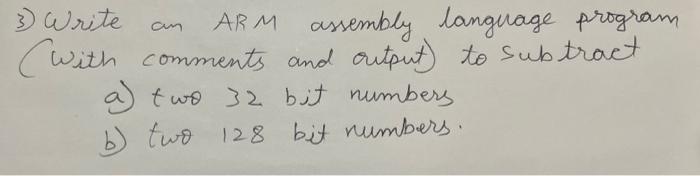 3) Write an ARM assembly language program
(With comments and output) to subtract
a) two 32 bit numbers
b) two 128 bit numbers.